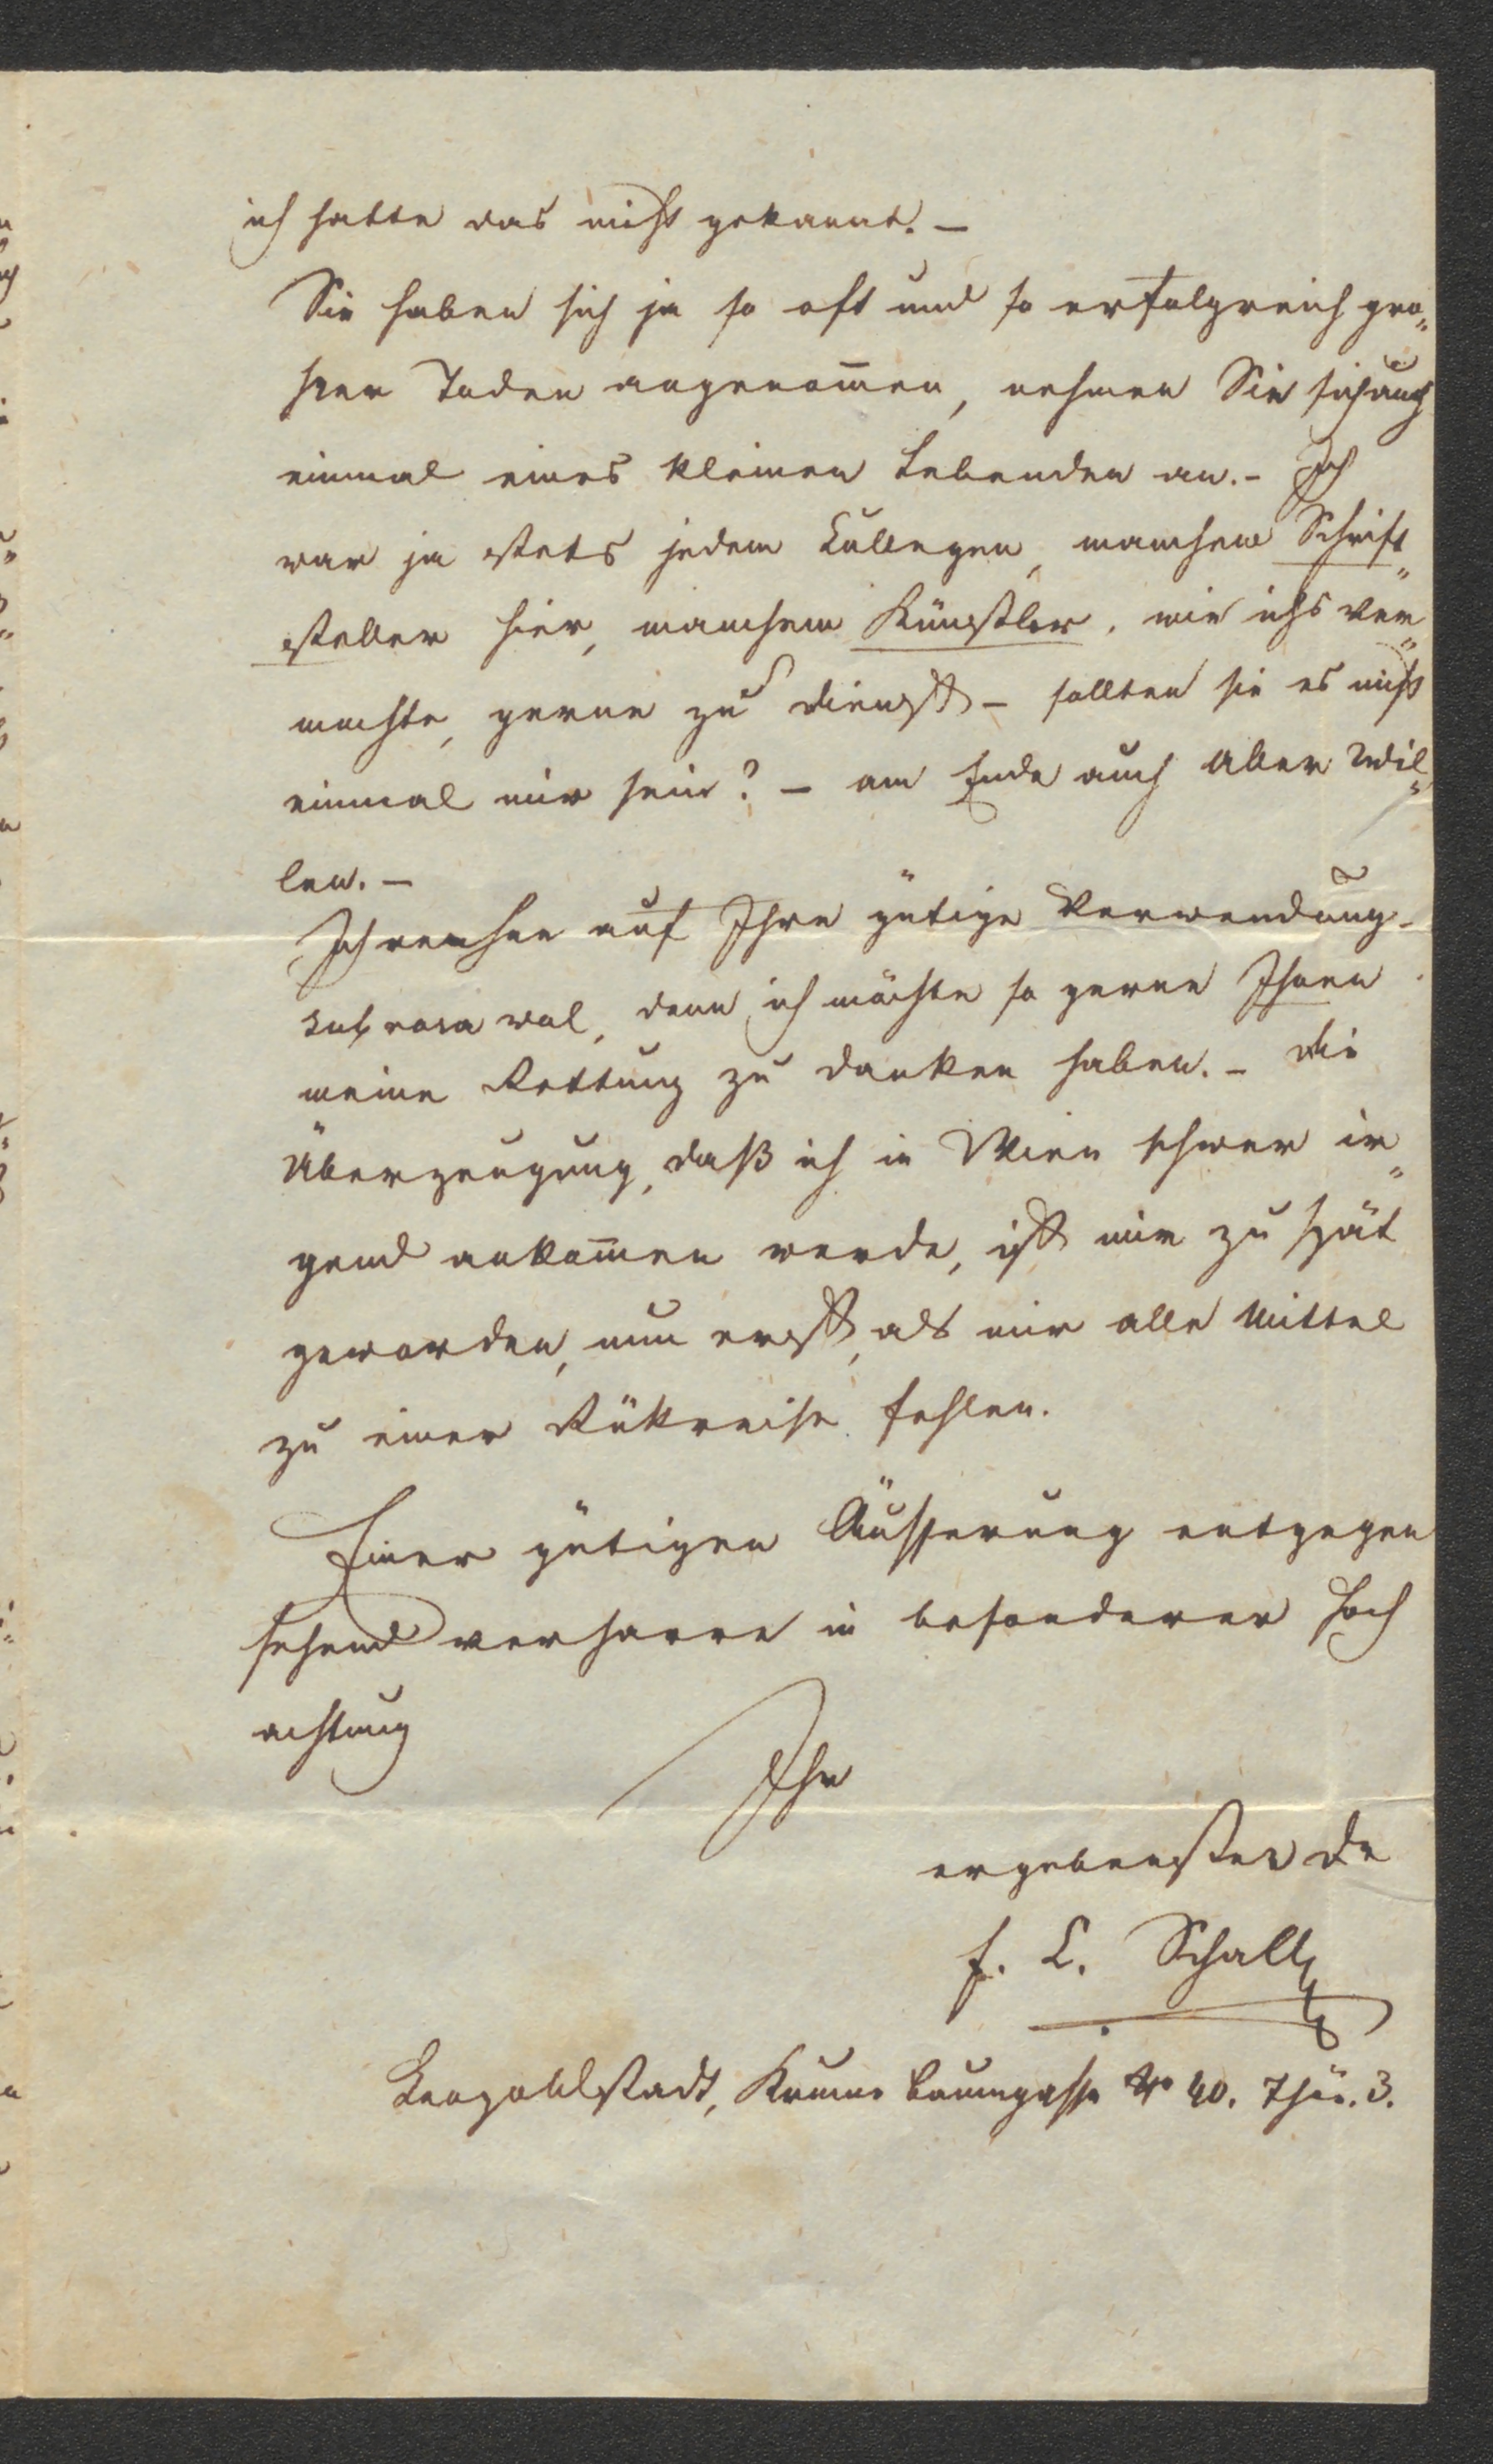 ich hatte das nicht gekannt. –
Sie haben sich ja so oft und so erfolgreich gro„
ßer Toden angenom̅en, nehmen Sie sich auch
einmal eines kleinen Lebenden an. – Ich
war ja stets jedem Collegen, manchem Schrift„
steller hier, manchem Künstler, wie ichs ver„
mochte, gerne zu Dienst – sollten sie es nicht
einmal mir sein? – am Ende auch Aller Wil„
len. –
Ich rechne auf Ihre gütige Verwendung –
sub rosa wol, denn ich möchte so gerne Ihnen
meine Rettung zu danken haben. – Die
Überzeugung, daß ich in Wien schwer ir„
gend ankom̅en werde, ist mir zu spät
geworden, nun erst, als mir alle Mittel
zu einer Rükreise fehlen.
Einer gütigen Äusserung entgegen
sehend verharre in besonderer Hoch
achtung
Ihr
ergebenster Dr
F. C. Schall
Leopoldstadt, Krumme Baumgasse No 40. Thür. 3.